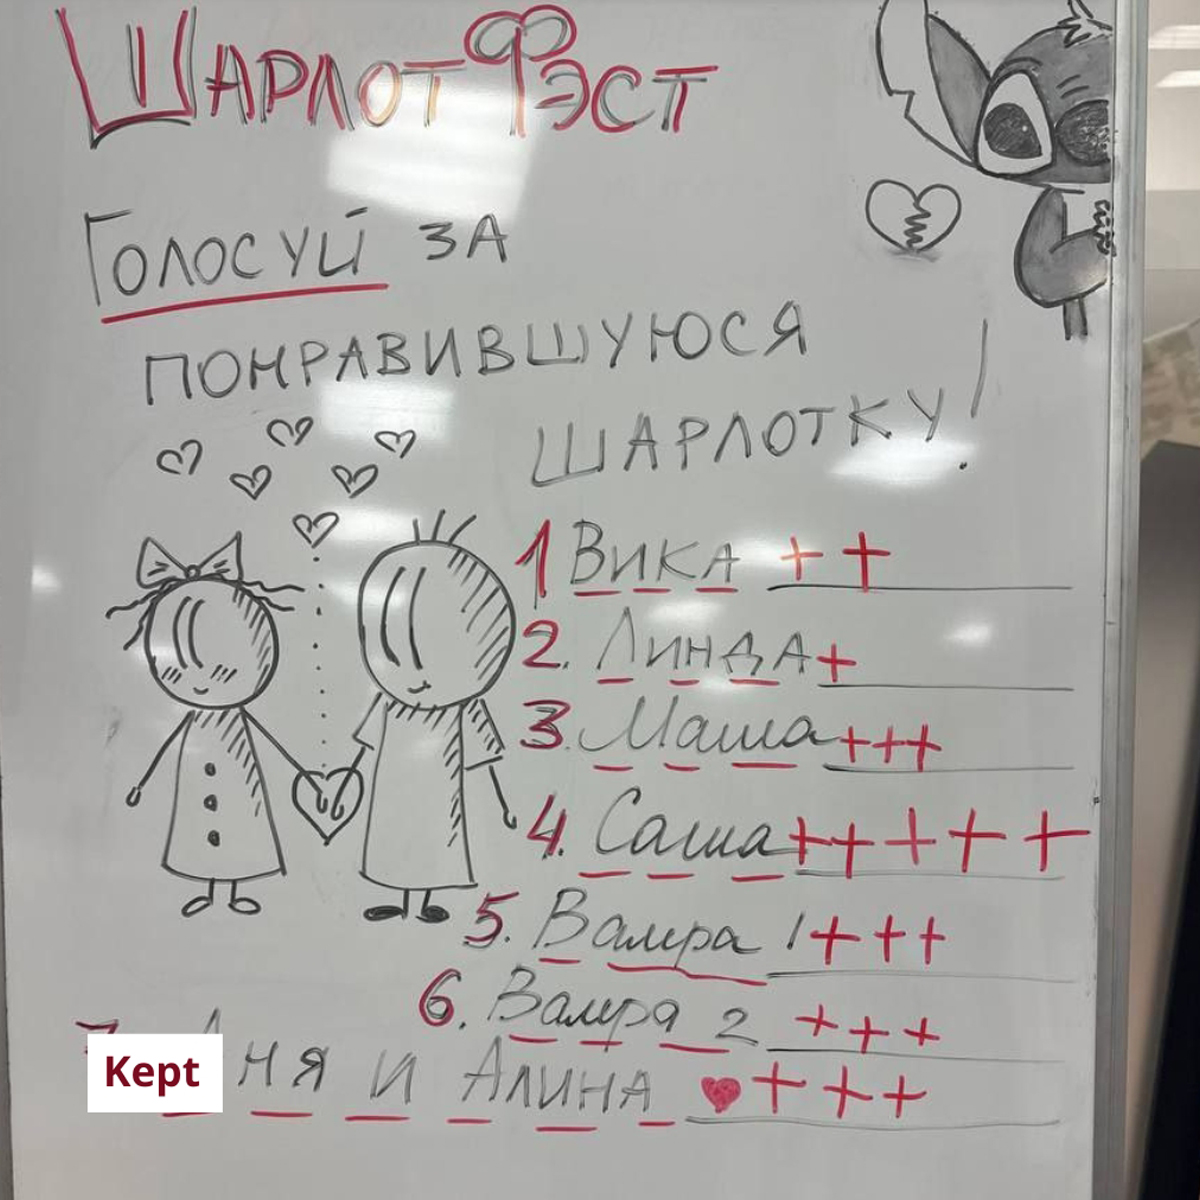 ШАРЛОТФЭСТ
ГОЛОСУЙ ЗА
ПОНРАВИВШУЮСЯ
ШАРЛОТКУ!
1 ВИКА ++
2. ЛИНДА +
3. Маша +++
4. Саша +++++
5. Валера 1 +++
6. Валера 2 +++
Kept НЯ И АЛИНА ♥+++